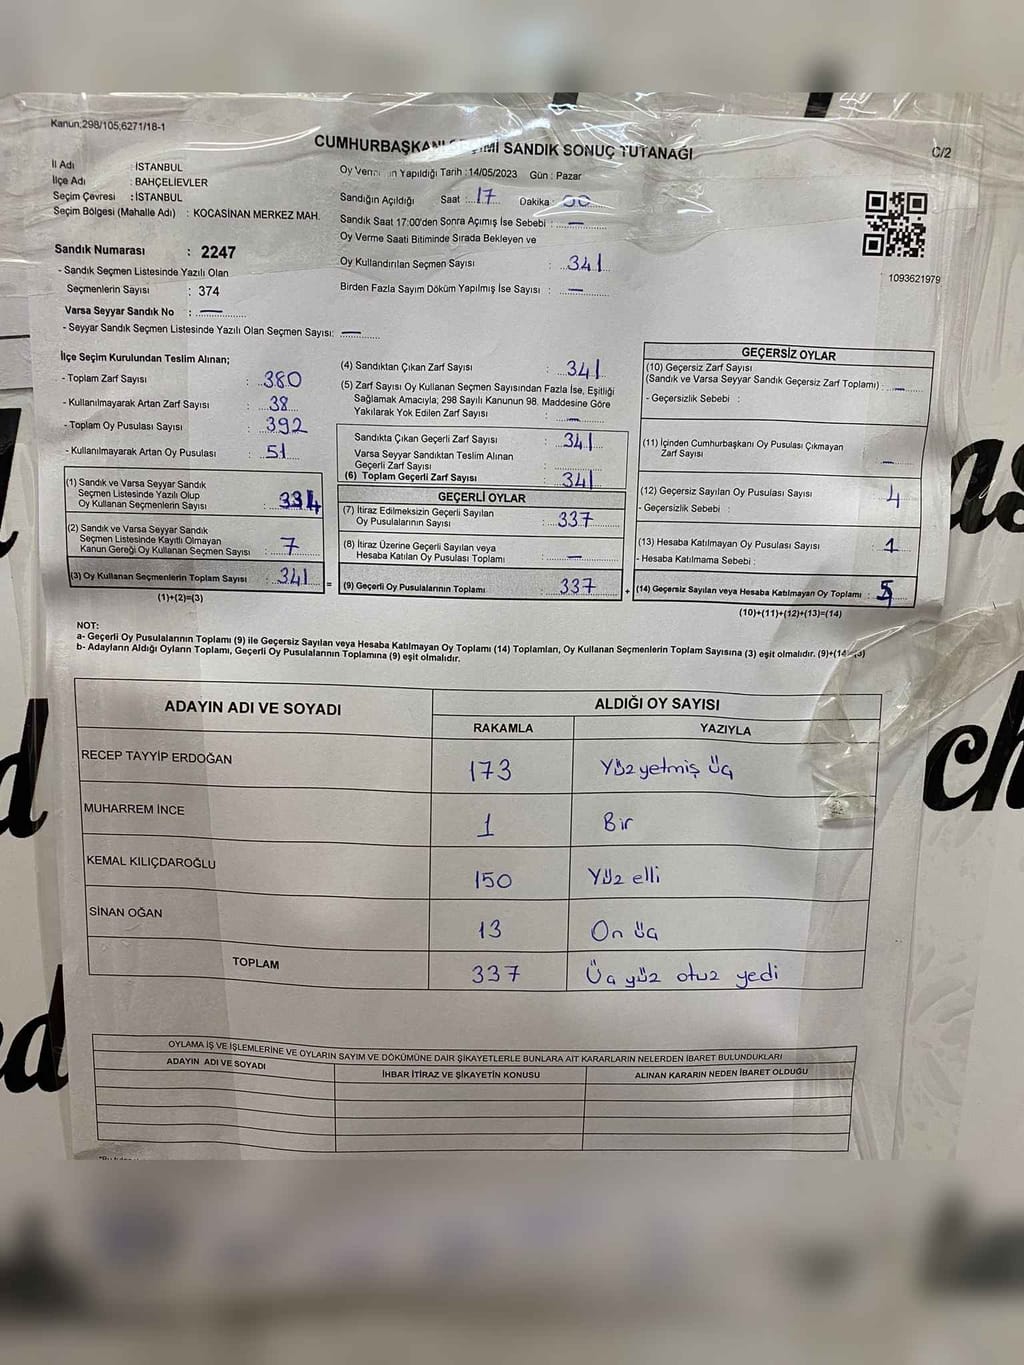 Kanun:298/105,6271/18-1
C/2
CUMHURBAŞKANI SEÇİMİ SANDIK SONUÇ TUTANAĞI
İl Adı : İSTANBUL
İlçe Adı : BAHÇELİEVLER
Seçim Çevresi : İSTANBUL
Seçim Bölgesi (Mahalle Adı) : KOCASİNAN MERKEZ MAH.
Sandık Numarası : 2247
- Sandık Seçmen Listesinde Yazılı Olan
Seçmenlerin Sayısı : 374
Varsa Seyyar Sandık No : —
- Seyyar Sandık Seçmen Listesinde Yazılı Olan Seçmen Sayısı: —
Yapıldığı Tarih :14/05/2023 Gün : Pazar
Sandığın Açıldığı Saat : 17 Dakika : 00
Sandık Saat 17:00'den Sonra Açımış İse Sebebi : —
Oy Verme Saati Bitiminde Sırada Bekleyen ve
Oy Kullandırılan Seçmen Sayısı : 341
Birden Fazla Sayım Döküm Yapılmış İse Sayısı : —
1093621979
İlçe Seçim Kurulundan Teslim Alınan;
- Toplam Zarf Sayısı : 380
- Kullanılmayarak Artan Zarf Sayısı : 38
- Toplam Oy Pusulası Sayısı : 392
- Kullanılmayarak Artan Oy Pusulası : 51
(1) Sandık ve Varsa Seyyar Sandık
Seçmen Listesinde Yazılı Olup
Oy Kullanan Seçmenlerin Sayısı : 334
(2) Sandık ve Varsa Seyyar Sandık
Seçmen Listesinde Kayıtlı Olmayan
Kanun Gereği Oy Kullanan Seçmen Sayısı : 7
(3) Oy Kullanan Seçmenlerin Toplam Sayısı : 341
(1)+(2)=(3)
(4) Sandıktan Çıkan Zarf Sayısı : 341
(5) Zarf Sayısı Oy Kullanan Seçmen Sayısından Fazla İse, Eşitliği
Sağlamak Amacıyla; 298 Sayılı Kanunun 98. Maddesine Göre
Yakılarak Yok Edilen Zarf Sayısı : —
Sandıkta Çıkan Geçerli Zarf Sayısı : 341
Varsa Seyyar Sandıktan Teslim Alınan
Geçerli Zarf Sayısı :
(6) Toplam Geçerli Zarf Sayısı : 341
GEÇERLİ OYLAR
(7) İtiraz Edilmeksizin Geçerli Sayılan
Oy Pusulalarının Sayısı : 337
(8) İtiraz Üzerine Geçerli Sayılan veya
Hesaba Katılan Oy Pusulası Toplamı : —
= (9) Geçerli Oy Pusulalarının Toplamı : 337
GEÇERSİZ OYLAR
(10) Geçersiz Zarf Sayısı
(Sandık ve Varsa Seyyar Sandık Geçersiz Zarf Toplamı) : —
- Geçersizlik Sebebi :
(11) İçinden Cumhurbaşkanı Oy Pusulası Çıkmayan
Zarf Sayısı : —
(12) Geçersiz Sayılan Oy Pusulası Sayısı : 4
- Geçersizlik Sebebi :
(13) Hesaba Katılmayan Oy Pusulası Sayısı : 1
- Hesaba Katılmama Sebebi :
+ (14) Geçersiz Sayılan veya Hesaba Katılmayan Oy Toplamı :
(10)+(11)+(12)+(13)=(14)
NOT:
a- Geçerli Oy Pusulalarının Toplamı (9) ile Geçersiz Sayılan veya Hesaba Katılmayan Oy Toplamı (14) Toplamları, Oy Kullanan Seçmenlerin Toplam Sayısına (3) eşit olmalıdır. (9)+(14)=(3)
b- Adayların Aldığı Oyların Toplamı, Geçerli Oy Pusulalarının Toplamına (9) eşit olmalıdır.
ADAYIN ADI VE SOYADI ALDIĞI OY SAYISI
RAKAMLA YAZIYLA
RECEP TAYYİP ERDOĞAN 173 Yüz yetmiş üç
MUHARREM İNCE 1 Bir
KEMAL KILIÇDAROĞLU 150 Yüz elli
SİNAN OĞAN 13 On üç
TOPLAM 337 Üç yüz otuz yedi
OYLAMA İŞ VE İŞLEMLERİNE VE OYLARIN SAYIM VE DÖKÜMÜNE DAİR ŞİKAYETLERLE BUNLARA AİT KARARLARIN NELERDEN İBARET BULUNDUKLARI
ADAYIN ADI VE SOYADI İHBAR İTİRAZ VE ŞİKAYETİN KONUSU ALINAN KARARIN NEDEN İBARET OLDUĞU